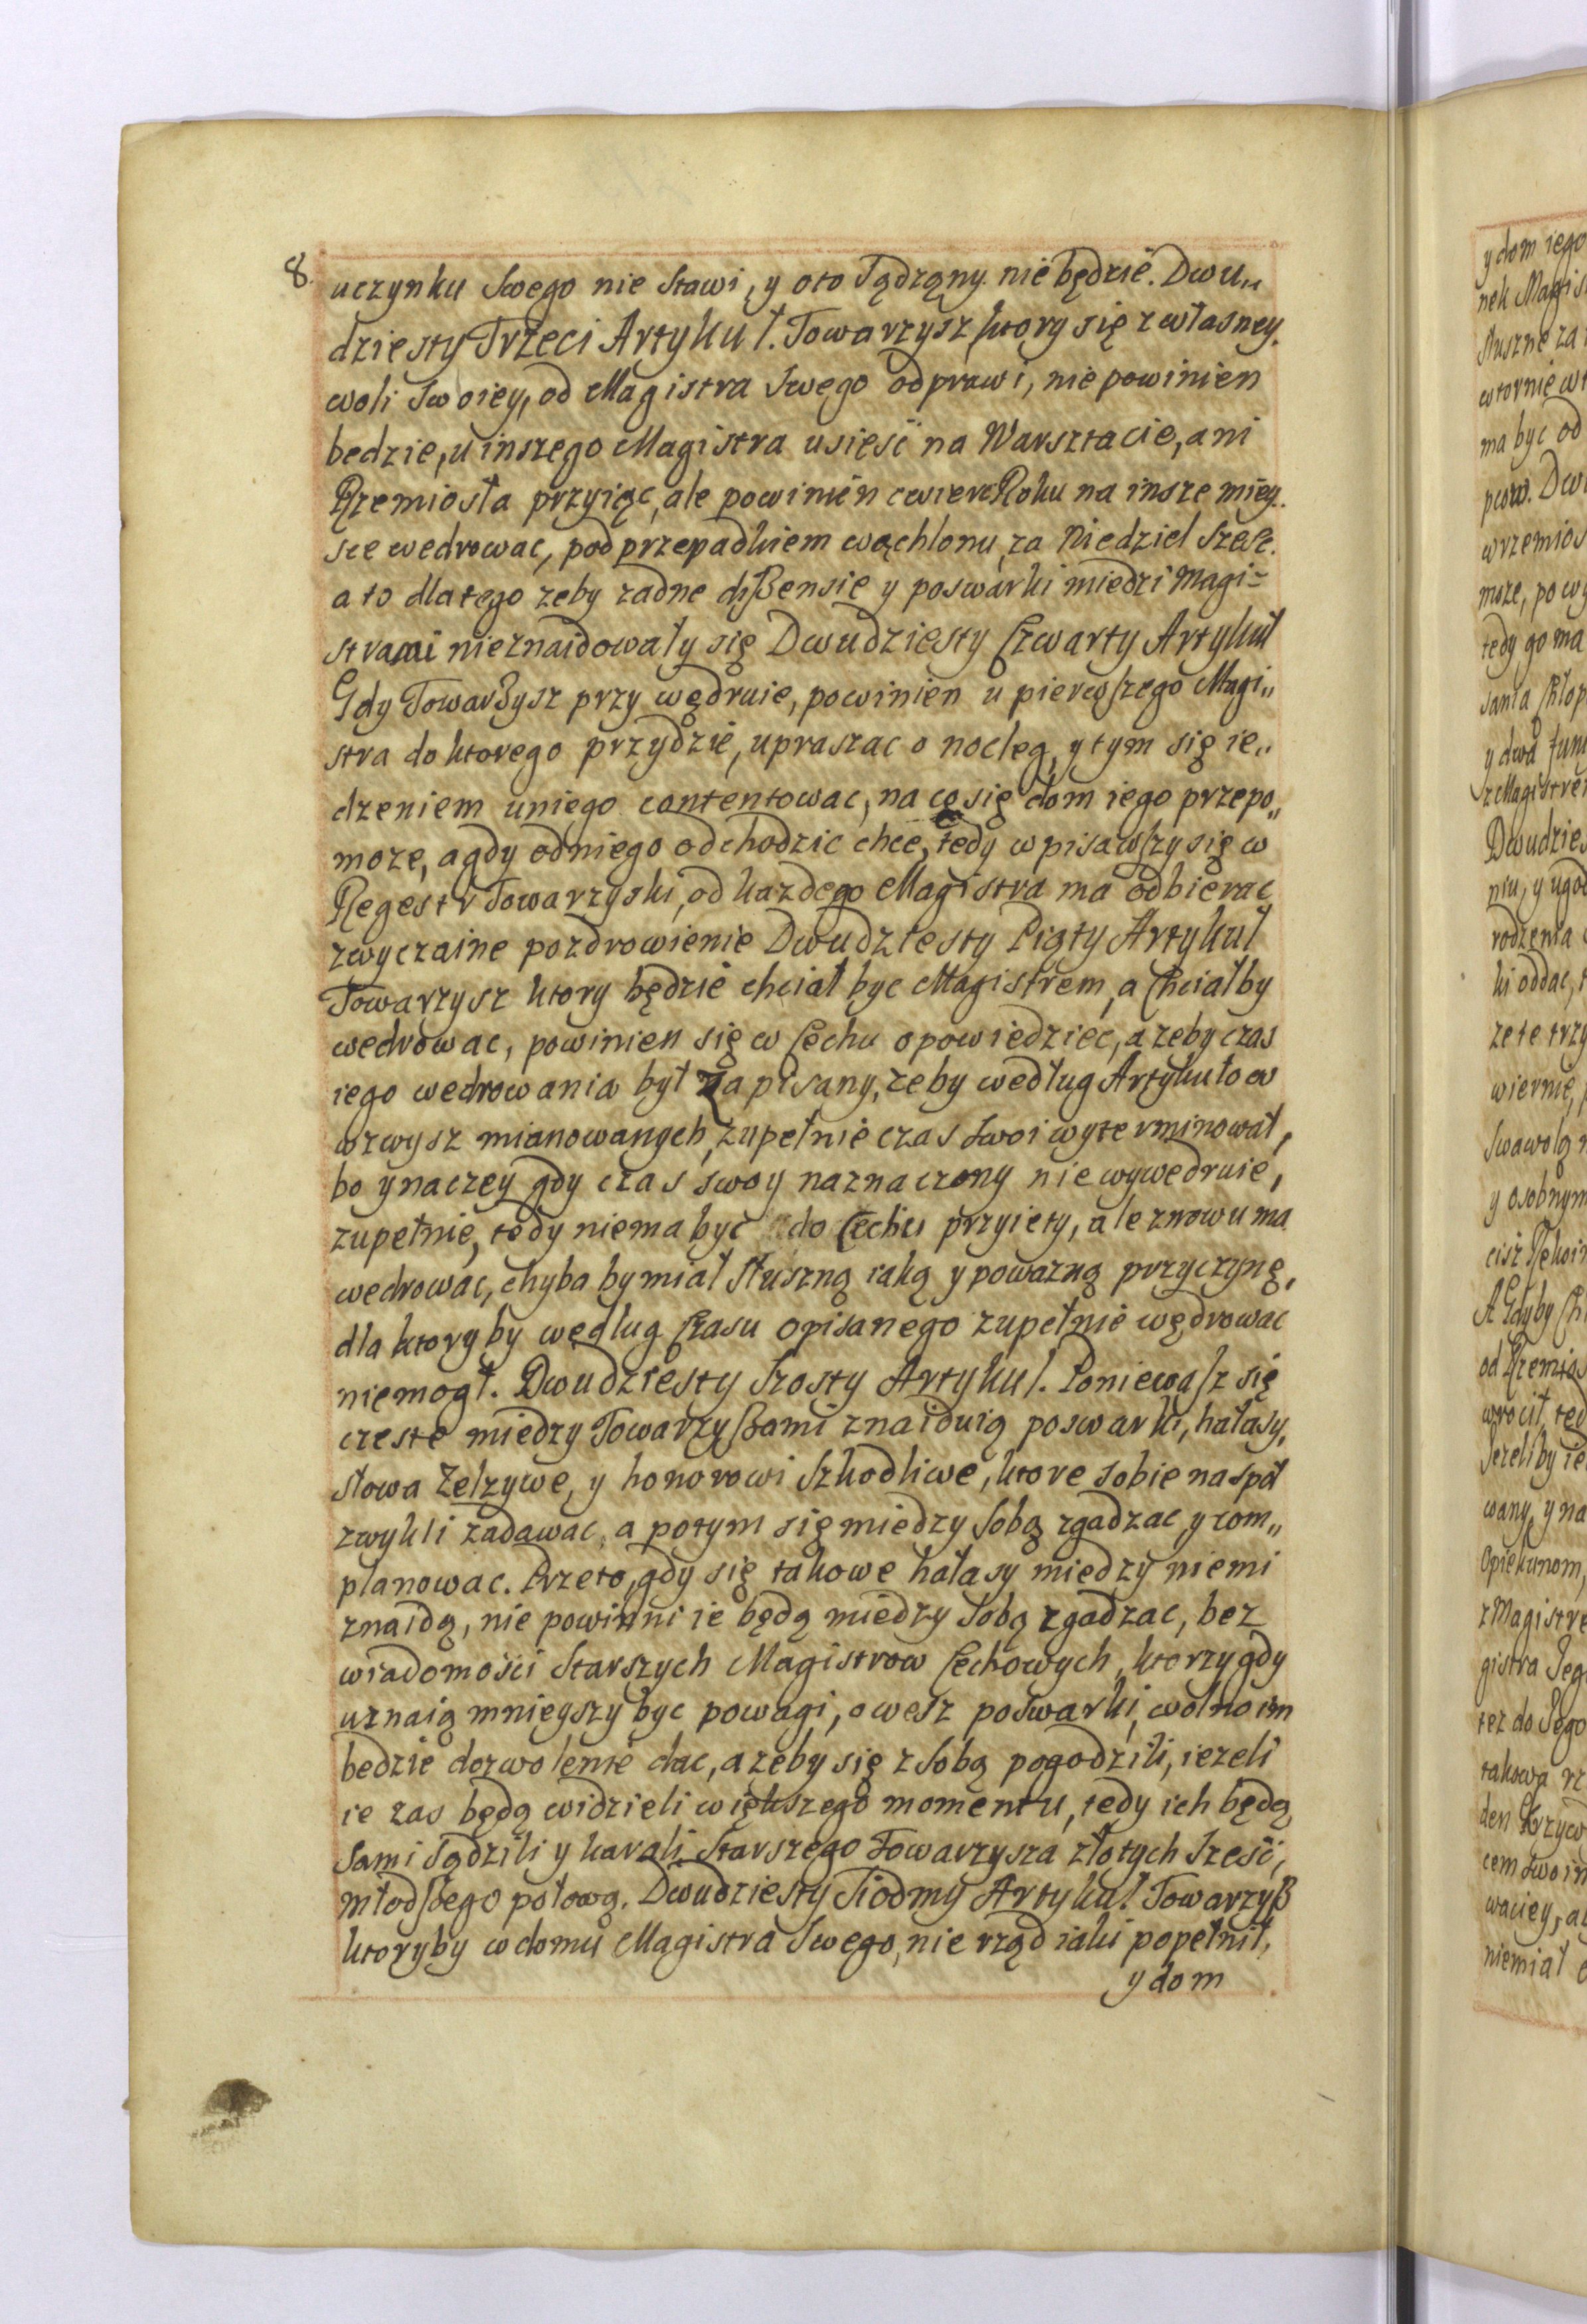 8.
uczynku swego nie stawi, y oto sądzązny nie będzie. Dwu„
dziesty Trzeci Artykuł. Towarzysz ktory się z własney
woli swoiey, od Magistra swego odprawi, nie powinien
bedzie, u inszego Magistra usieść na Warsztacie, ani
Rzemiosła przyiąc, ale powinien cwierc Roku na insze miey„
sce wedrowac, pod przepadkiem wochlonu, za Niedziel szesc.
a to dlatego zeby zadne dißensie y poswarki miedzi Magi=
strami nieznaidowały się Dwudziesty Czwarty Artykuł
Gdy Towarzysz przy wędruie, powinien u pierwszego Magi„
stra do ktorego przydzie, upraszac o nocleg, y tym się ie„
dzeniem uniego contentowac, na co się dom iego przepo„
moze, a gdy odniego odchodzic chce, tedy wpisawszy się w
Regestr Towarzyski, od kazdego Magistra ma odbierac
zwyczaine pozdrowienie Dwudziesty Piąty Artykuł
Towarzysz ktory będzie chciał byc Magistrem, a Chciałby
wedrowac, powinien się w Cechu opowiedziec, a zeby czas
iego wedrowania był Zapisany, zeby według Artykułow
wzwysz mianowanych, zupełnie czas swoi wyterminował,
bo ynaczey gdy czas swoy naznaczony nie wywedruie,
zupełnie, tedy niema być do Cechu przyiety, ale znowu ma
wedrowac, chyba by miał słuszną iaką y powazną przyczynę,
dla ktory by według Czasu opisanego zupełnie wędrowac
niemogł. Dwudziesty Szosty Artykuł. Poniewasz się
czeste miedzy Towarzyßami znaiduią poswarki, hałasy,
słowa Zelzywe, y honorowi Szkodliwe, ktore sobie naspół
zwykli zadawac, a potym się miedzy sobą zgadzac y com„
planowac. Przeto, gdy się takowe hałasy miedzy niemi
znaidą, nie powinni ie będą miedzy sobą zgadzac, bez
wiadomości Starszych Magistrow Cechowych, ktorzy gdy
uznaią mnieyszy byc powagi, owesz poswarki, wolno im
bedzie dozwolenie dac, a zeby się z sobą pogodzili, iezeli
ie zas będą widzieli większego momentu, tedy ich będą
sami sądzili y karali Starszego Towarzysza złotych sześć,
młodszego połową. Dwudziesty Siodmy Artykuł. Towarzyß
ktoryby w domu Magistra swego, nie rząd iaki popełnił,
y dom
y dom iego
nek Magis
słuszne za
wtornie wt
ma byc od
pcow. Dwu
w rzemios
moze, po wy
tedy go ma
sania Chłop
y dwa fun
z Magistre
Dwudzies
niu, y ugod
rodzenia
ki oddac,
ze te trzy
wiernie,
swawolą
y osobnym
A Gdyby Ch
od Rzemios
wrocił, ted
Jezeliby ie
wany, y na
Opiekunom,
z Magistre
gistra Jeg
tez do Jego
takowa rz
den Krzyw
cem swoim
waciey, a
niemiał